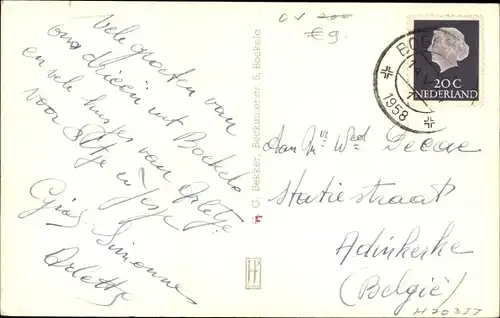 Vele groeten van
ons drieën uit Boekelo
en vele kusjes van Arletje
voor en Jesje
Simonne
Arlette
C. Bekker, Beckumerstr 5, Boekelo
H
€9.
BOE
1958
20 C
NEDERLAND
Aan Mr Wed Decae
Statiestraat
Adinkerke
(België)